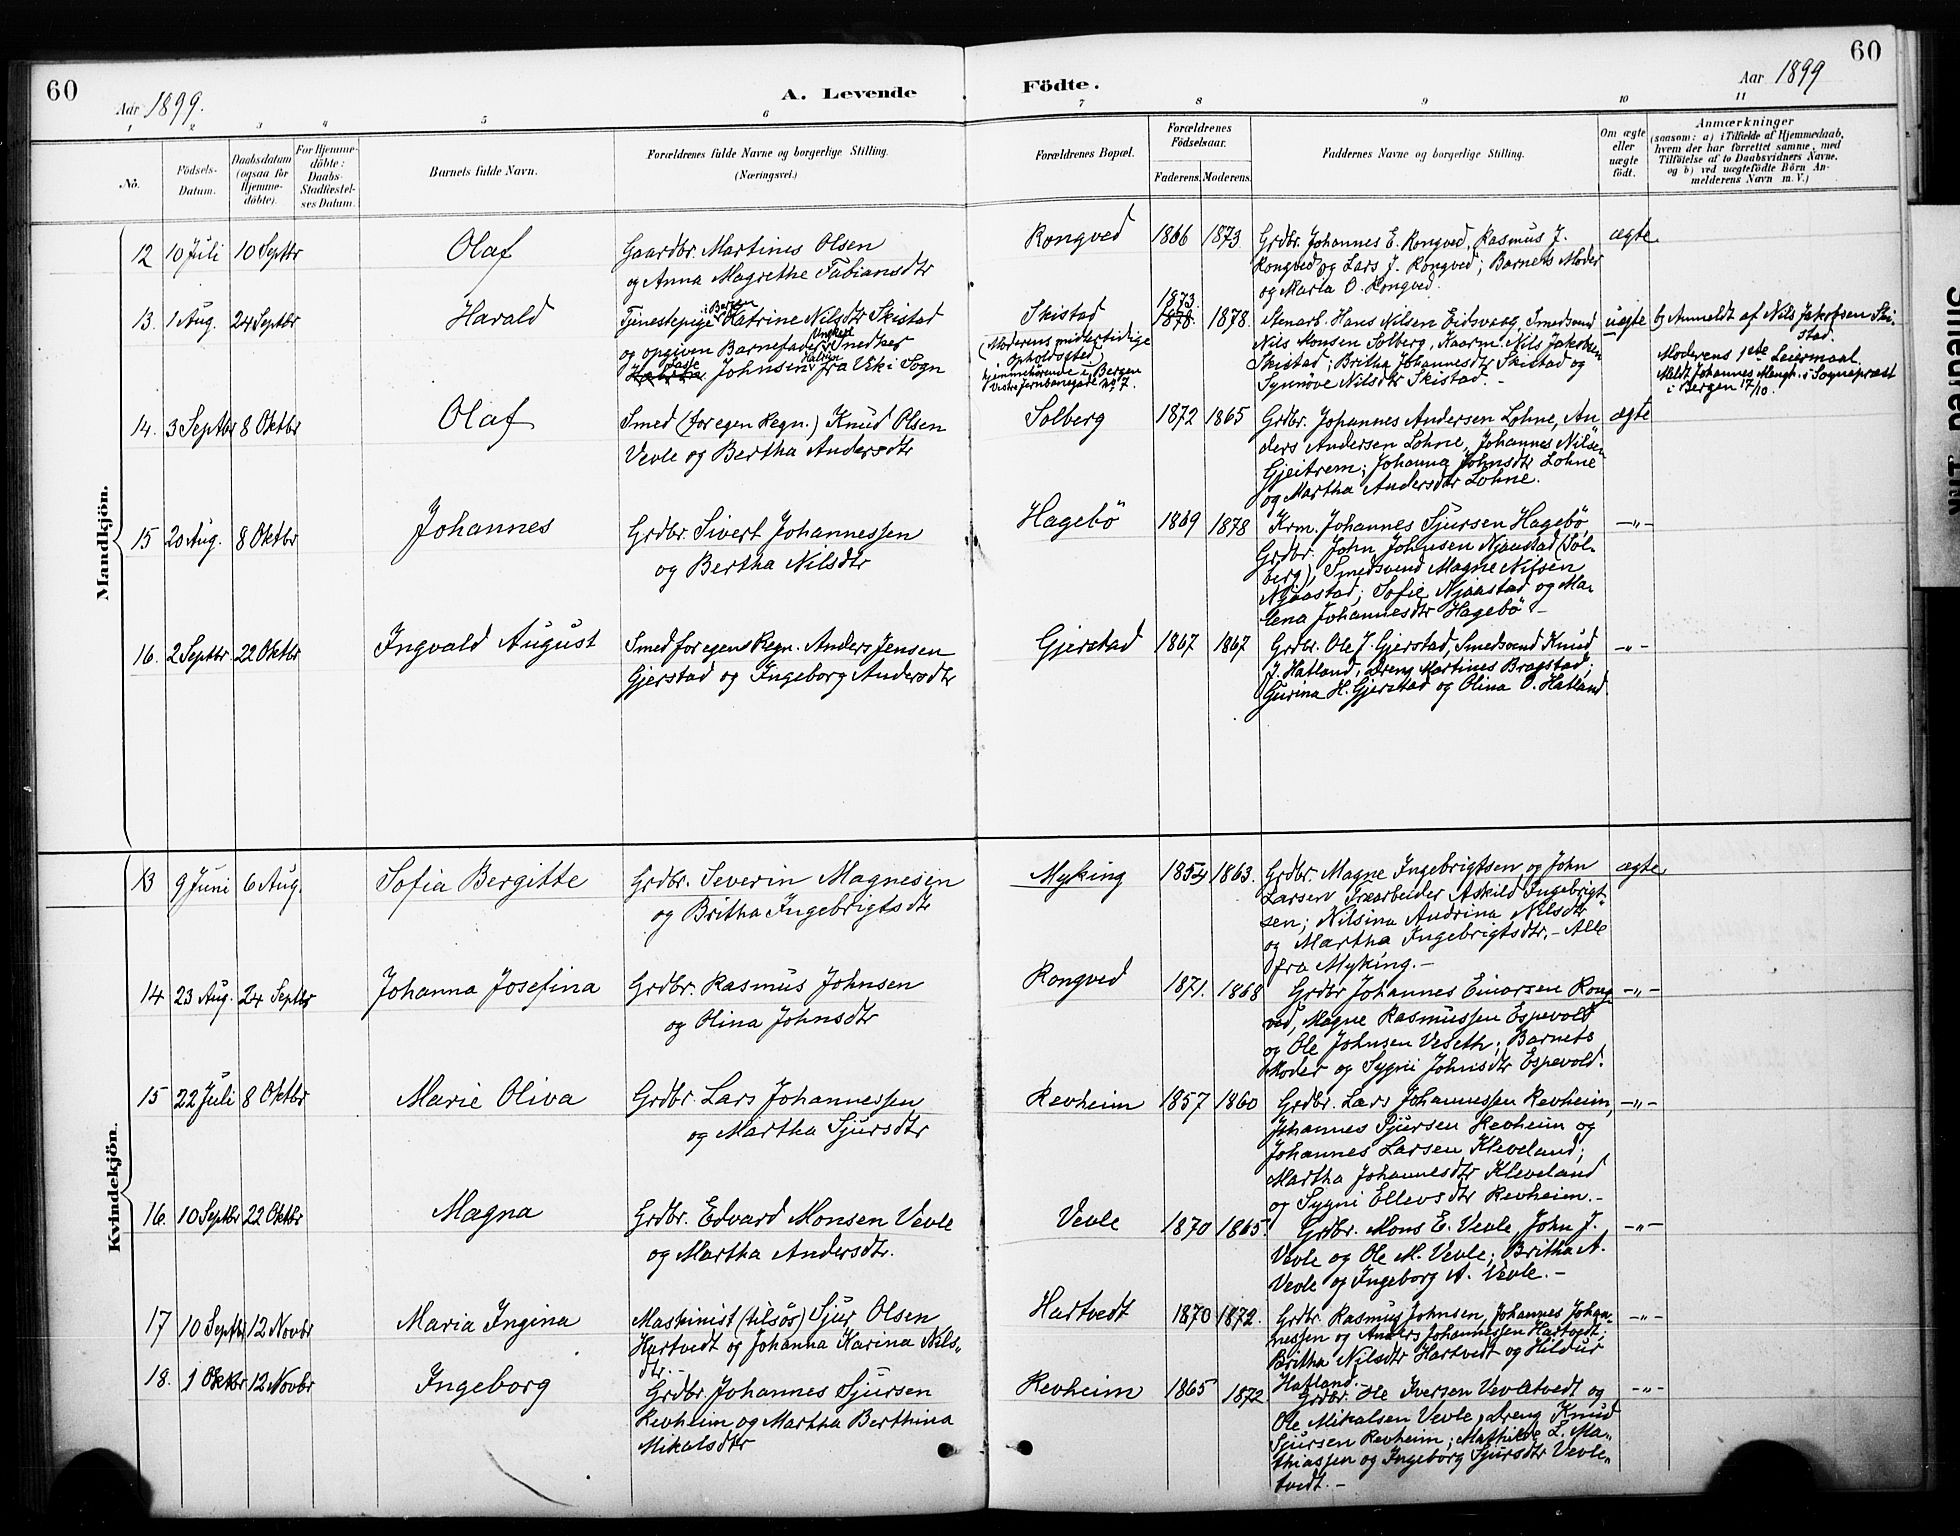 60
Aar 1899.
A. Levende
Födte.
Aar 1899
60
1 2 3 4 5 6 7 8 9 10 11
No.
Födsels-
Datum.
Daabsdatum
(ogsaa for
Hjemme-
döbte).
For Hjemme-
döbte:
Daabs-
Stadfæstel-
ses Datum.
Barnets fulde Navn.
Forældrenes fulde Navne og borgerlige Stilling.
(Næringsvei.)
Forældrenes Bopæl.
Forældrenes
Födselsaar.
Faderens. Moderens.
Faddernes Navne og borgerlige Stilling.
Om ægte
eller
uægte
födt.
Anmærkninger
(saasom: a) i Tilfælde af Hjemmedaab,
hvem der har forrettet samme, med
Tilföielse af to Daabsvidners Navne.
og b) ved uægtefödte Börn An-
melderens Navn m. V.)
Mandkjön.
12 10 Juli 10 Septbr Olaf
Gaardbr. Martines Olsen
og Anna Magrethe Fabiansdtr
Rongved 1866 1873
Grdbr. Johannes E. Rongved, Rasmus J.
Rongved og Lars J. Rongved; Barnets Moder
og Maria O. Rongved.
ægte
13. 1 Aug. 24 Septbr Harald
i Bergen
Tjenestepige Katrine Nilsdtr Skistad
Ungkarl
og opgiven Barnefader Snedker
Johnsen fra Vik i Sogn
Skistad
(Moderens midlertidige
Opholdssted)
hjemmehörende i Bergen
Vestre Jernbanegade No 7.
1873
1870 1878.
Stenarb. Hans Nilsen Eidsvaag, Smedsvend
Nils Monsen Solberg, Kaarm. Nils Jakobsen
Skistad; Britha Johannesdtr Skistad og
Synnöve Nilsdtr Skistad. -
uægte
b) Anmeldt af Nils Jakobsen Ski-
stad.
Moderens 1ste Leiermaal.
i Bergen 17/10.
14. 3 Septbr 8 Oktbr Olaf
Smed (for egen Regn.) Knud Olsen
Vevle og Bertha Andersdtr
Solberg 1872 1865
Grdbr. Johannes Andersen Lohne, An-
ders Andersen Lohne, Johannes Nilsen
Gjeitrem; Johanna Johnsdtr Lohne
og Martha Andersdtr Lohne.
ægte
15 20 Aug. 8 Oktbr Johannes
Grdbr. Sivert Johannessen
og Bertha Nilsdtr
Hagebö 1869 1878
Krm. Johannes Sjursen Hagebö
Grdbr. John Johnsen Njaastad (Sol-
berg), Smedsvend Magne Nilsen
Njaastad; Sofie Njaastad og Ma-
lena Johannesdtr Hagebö -
-"-
16. 2 Septbr 22 Oktbr Ingvald August
Smed for egen Regn. Anders Jensen
Gjerstad og Ingeborg Andersdtr
Gjerstad 1867 1867
Grdbr. Ole J. Gjerstad, Smedsvend Knud
J. Hatland, Dreng Martines Brogstad;
Gurina H. Gjerstad og Olina O. Hatland
-"-
Kvindekjön.
13 9 Juni 6 Aug. Sofia Bergitte
Grdbr. Severin Magnesen
og Britha Ingebrigtsdtr
Myking 1854 1863.
Grdbr. Magne Ingebrigtsen og John
Larsen Træarbeider Askild Ingebrigt-
sen; Nilsina Andrina Nilsdtr
og Martha Ingebrigtsdtr. - Alle
fra Myking. -
ægte
14 23 Aug. 24 Septbr Johanna Josefina
Grdbr. Rasmus Johnsen
og Olina Johnsdtr
Rongved 1871. 1868
Grdbr Johannes Einarsen Rong-
ved, Magne Rasmussen Espevold
og Ole Johnsen Veseth; Barnets
Moder og Sygni Johnsdtr Espevold.
-"-
15 22 Juli 8 Oktbr Marie Oliva
Grdbr. Lars Johannessen
og Martha Sjursdtr
Revheim 1857 1860
Grdbr. Lars Johannessen Revheim,
Johannes Sjursen Revheim og
Johannes Larsen Kleveland;
Martha Johannesdtr Kleveland
og Sygni Ellevsdtr Revheim. -
-"-
16. 10 Septbr 22 Oktbr Magna
Grdbr. Edvard Monsen Vevle
og Martha Andersdtr.
Vevle 1870 1865.
Grdbr. Mons E. Vevle, John J.
Vevle og Ole M. Vevle; Britha A.
Vevle og Ingeborg A. Vevle. -
-"-
17 10 Septbr 12 Novbr Maria Ingina
Maskinist (tilsös) Sjur Olsen
Hartvedt og Johanna Karina Nils-
dtr. -
Hartvedt 1870 1872.
Grdbr. Rasmus Johnsen, Johannes Johan-
nessen og Anders Johannessen Hartvedt;
Britha Nilsdtr Hartvedt og Hildur
Hatland. -
-"-
18. 1 Oktbr 12 Novbr Ingeborg
Grdbr. Johannes Sjursen
Revheim og Martha Berthina
Mikalsdtr
Revheim 1865 1872.
Grdbr. Ole Iversen Vevletvedt og
Ole Mikalsen Vevle, Dreng Knud
Sjursen Revheim; Mathilde L. Ma-
thiassen og Ingeborg Sjursdtr Vevle-
tvedt. -
-"-